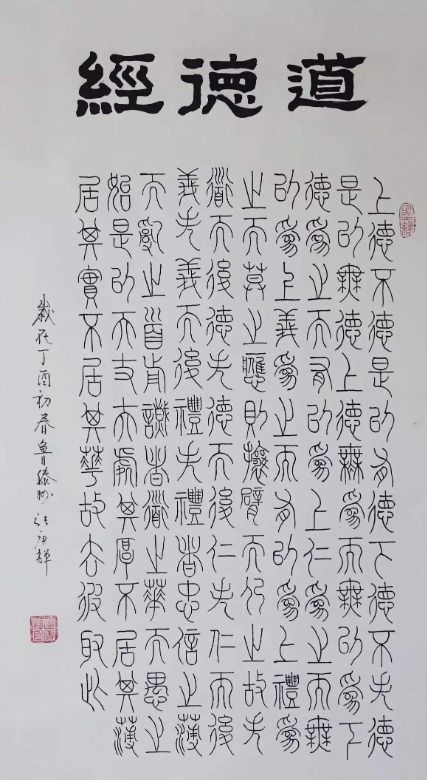 道德經
上德不德是以有德下德不失德
是以無德上德無為而無以為下
德為之而有以為上仁為之而無
以為上義為之而有以為上禮為
之而莫之應則攘臂而扔之故失
道而後德失德而後仁失仁而後
義失義而後禮夫禮者忠信之薄
而亂之首前識者道之華而愚之
始是以大丈夫處其厚不居其薄
居其實不居其華故去彼取此
歲在丁酉初春魯滕州